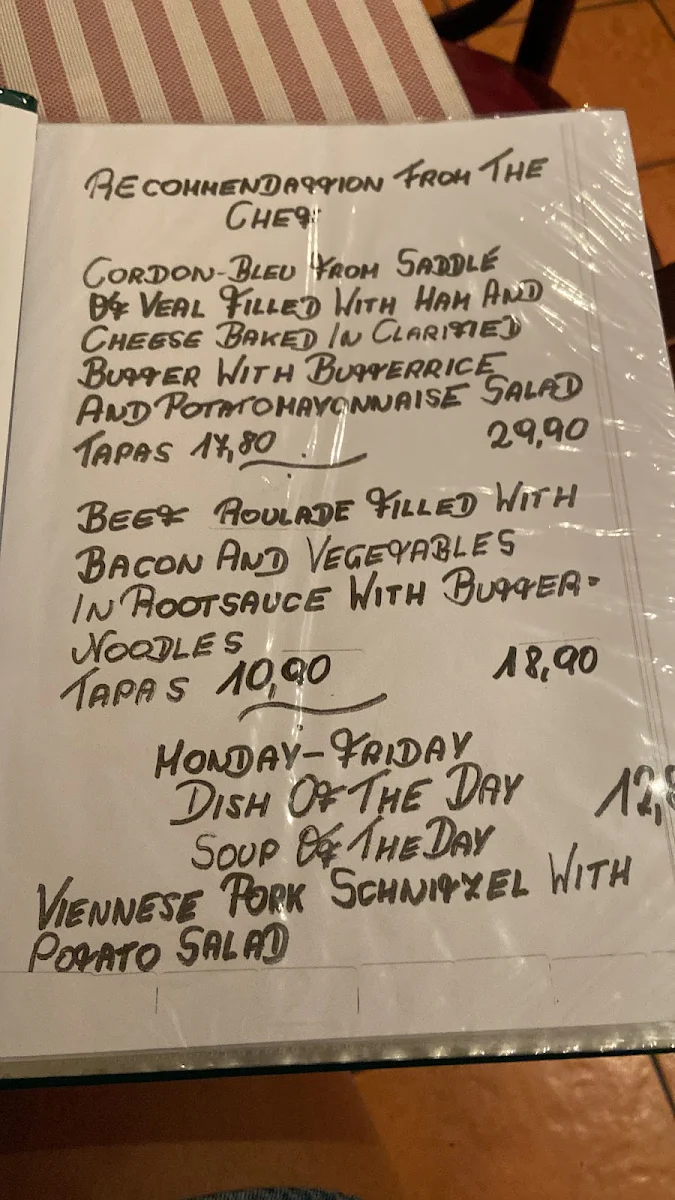 RECOMMENDATTION FROM THE
CHEF:
CORDON-BLEU FROM SADDLE
OF VEAL FILLED WITH HAM AND
CHEESE BAKED IN CLARIFIED
BUTTER WITH BUTTERRICE
AND POTATOMAYONNAISE SALAD
TAPAS 17,80 29,90
BEEF ROULADE FILLED WITH
BACON AND VEGETABLES
IN ROOTSAUCE WITH BUTTER-
NOODLES
TAPAS 10,90 18,90
MONDAY-FRIDAY
DISH OF THE DAY 12,8
SOUP OF THE DAY
VIENNESE PORK SCHNITZEL WITH
POTATO SALAD